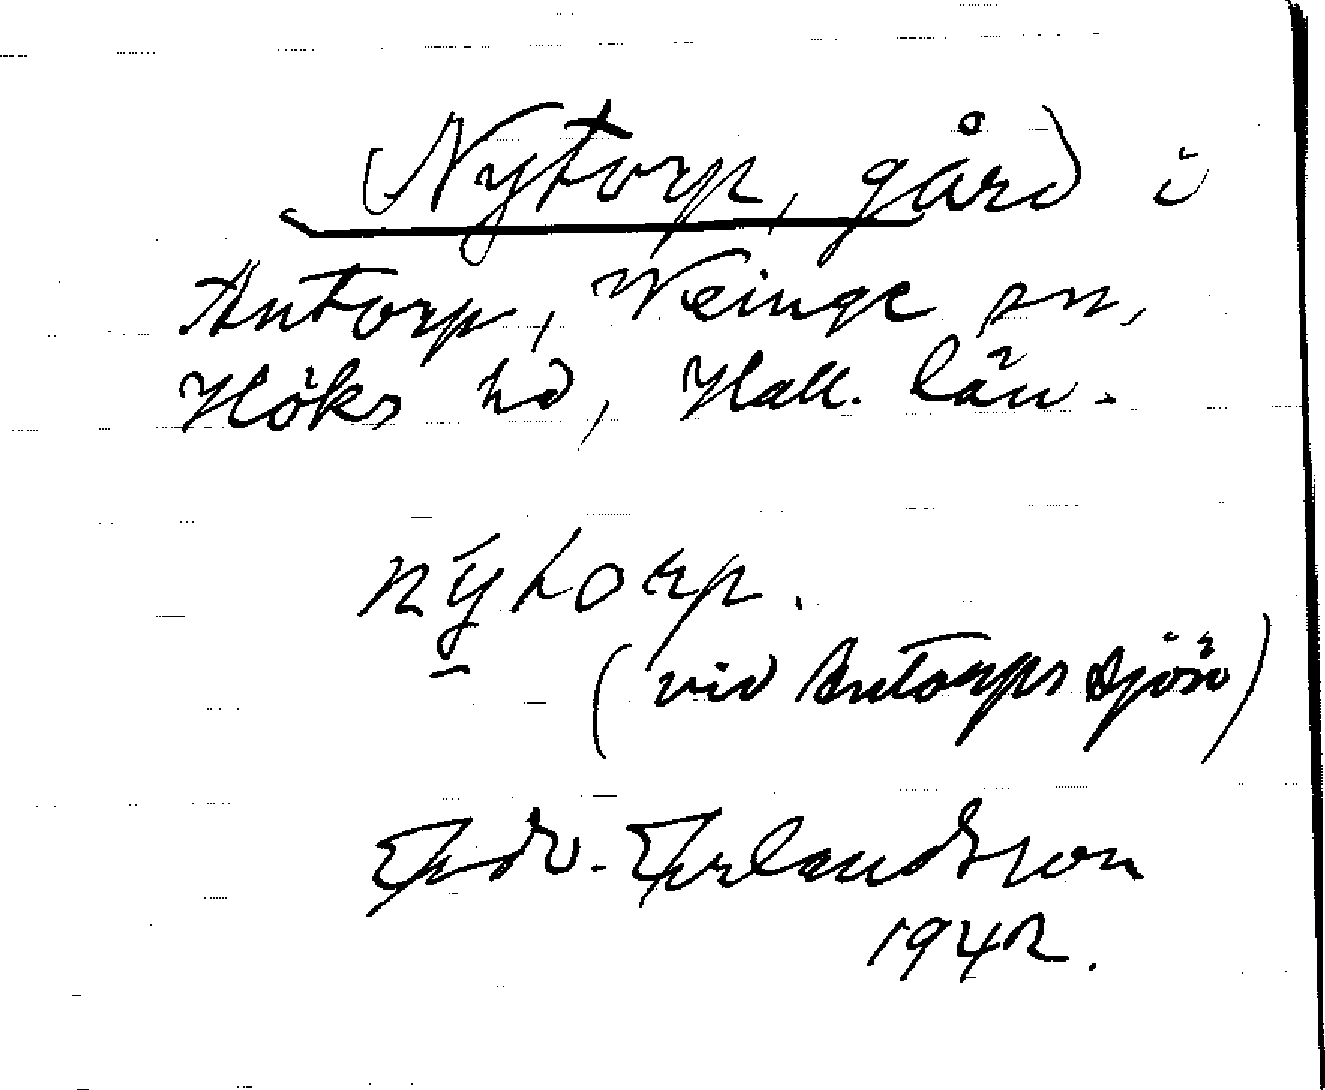 Nytorp, gård i
Antorp, Veinge sn,
Höks hd, Hall. län.
nȳtorp.
(vid Antorpssjön)
Edv. Erlandsson
1942.